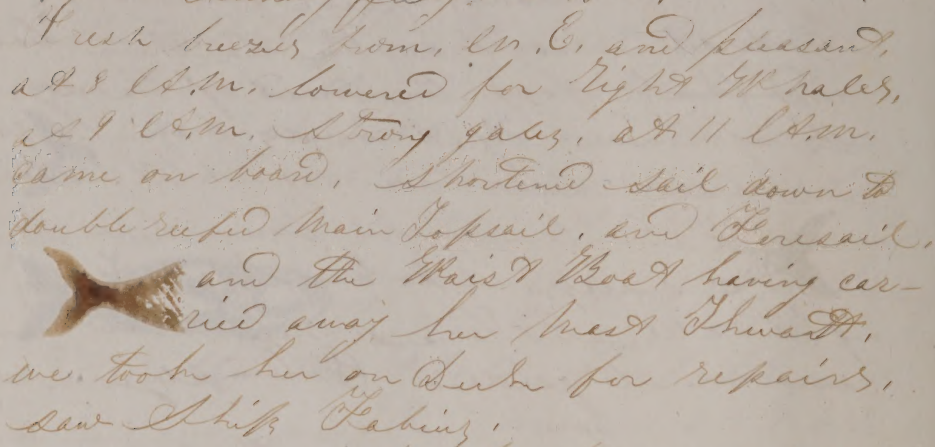 Fresh breezes from. N. E. and pleasant,
at 8 A.m. lowered for Right Whales,
at 9 A.m. Strong gales. at 11 A.m.
came on board. Shortened sail down to
double reefed Main Topsail. and Foresail.
and the Waist Boat having car-
ried away her Mast Thwart.
we took her on Deck for repairs.
saw Ship Fabius.